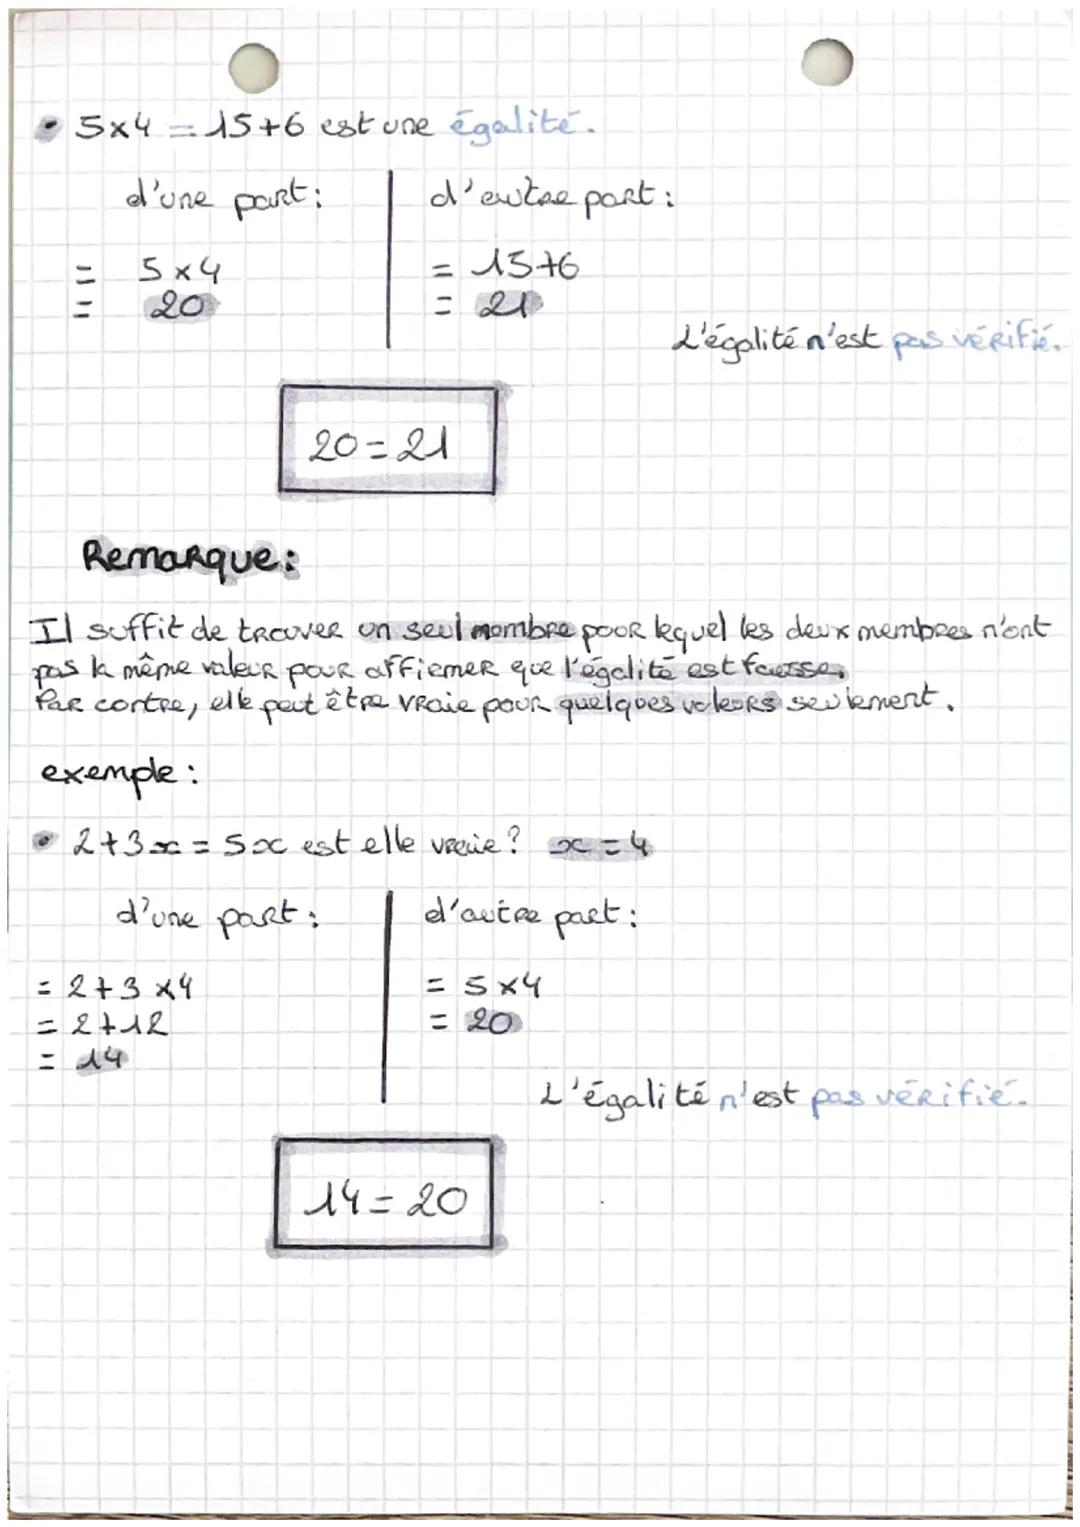 • 5×4 = 15+6 est une égalité.
d'une part :
d'autre part :
= 5×4
= 15+6
= 20
= 21
L'égalité n'est pas vérifié.
20 = 21
Remarque :
Il suffit de trouver un seul mombre pour lequel les deux membres n'ont
pas la même valeur pour affirmer que l'égalité est fausse.
Par contre, elle peut être vraie pour quelques valeurs seulement.
exemple :
• 2+3x = 5x est elle vraie ? x = 4
d'une part :
d'autre part :
= 2+3×4
= 5×4
= 2+12
= 20
= 14
L'égalité n'est pas vérifié.
14 = 20